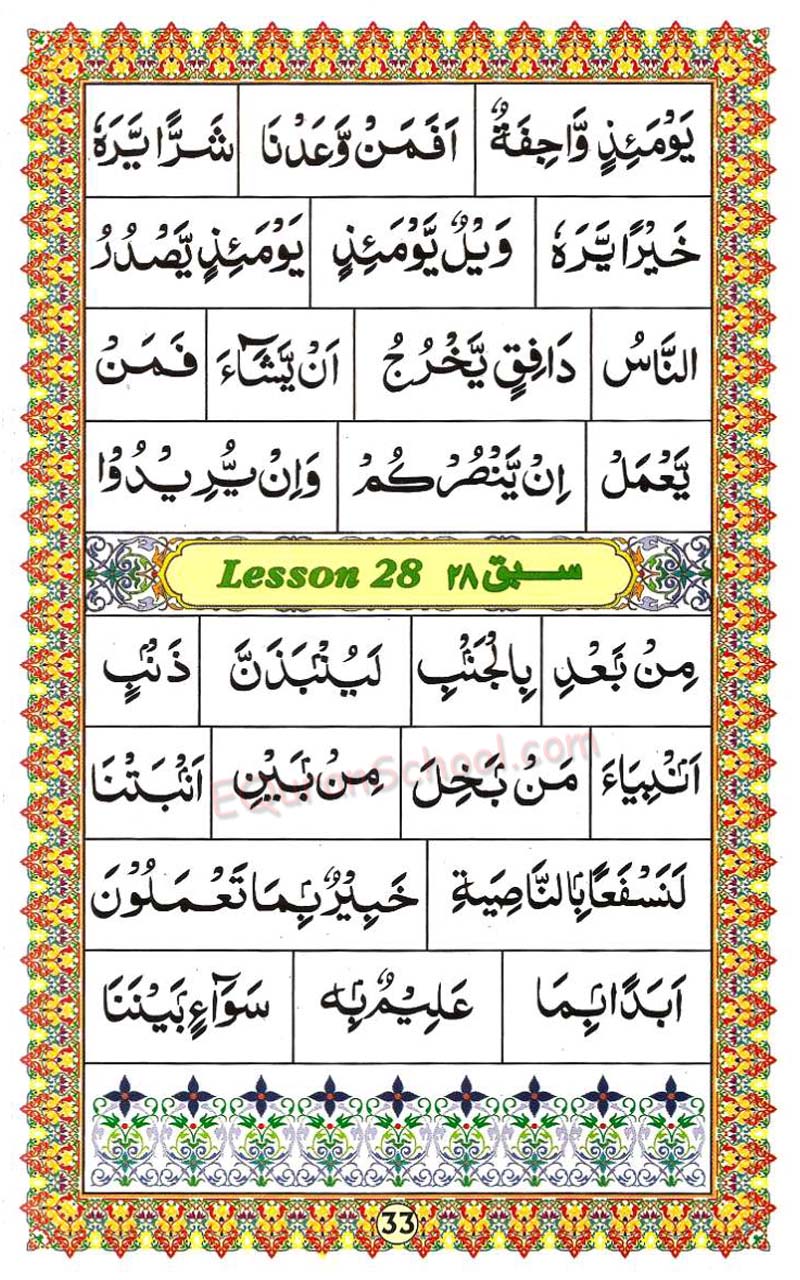 يَوْمَئِذٍ وَّاجِفَةٌ اَفَمَنْ وَّعَدْنَا شَرًّا يَّرَهٗ
خَيْرًا يَّرَهٗ وَيْلٌ يَّوْمَئِذٍ يَوْمَئِذٍ يَّصْدُرُ
النَّاسُ دَافِقٍ يَّخْرُجُ اَنْ يَّشَآءَ فَمَنْ
يَّعْمَلْ اِنْ يَّنْصُرْكُمْ وَاِنْ يُّرِيْدُوْا
Lesson 28 سبق ۲۸
مِنْۢ بَعْدِ بِالْجَنْۢبِ لَيُنْۢبَذَنَّ ذَنْۢبٍ
اَنْۢبِيَآءَ مَنْۢ بَخِلَ مِنْۢ بَيْنِ اَنْۢبَتْنَا
EQuranSchool.com
لَنَسْفَعًاۢ بِالنَّاصِيَةِ خَبِيْرٌۢ بِمَا تَعْمَلُوْنَ
اَبَدًاۢ بِمَا عَلِيْمٌۢ بِهٖ سَوَآءٍۢ بَيْنَنَا
33